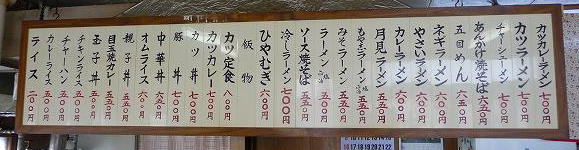 カツカレーラーメン 七〇〇円
カツラーメン 七〇〇円
チャーシューメン 七〇〇円
あんかけ焼そば 六五〇円
五目めん 六五〇円
ネギラーメン 六〇〇円
やさいラーメン 六〇〇円
カレーラーメン 六〇〇円
月見ラーメン 五五〇円
もやしラーメン 五五〇円
みそラーメン 五五〇円
ラーメン 五〇〇円
ソース焼そば 五五〇円
冷しラーメン 七〇〇円
ひやむぎ 六〇〇円
飯物
カツ定食 八〇〇円
カツカレー 七〇〇円
カツ丼 七〇〇円
豚丼 七〇〇円
中華丼 六五〇円
オムライス 六五〇円
親子丼 五五〇円
目玉焼カレー 五五〇円
玉子丼 五〇〇円
チキンライス 五〇〇円
チャーハン 五〇〇円
カレーライス 五〇〇円
ライス 二〇〇円